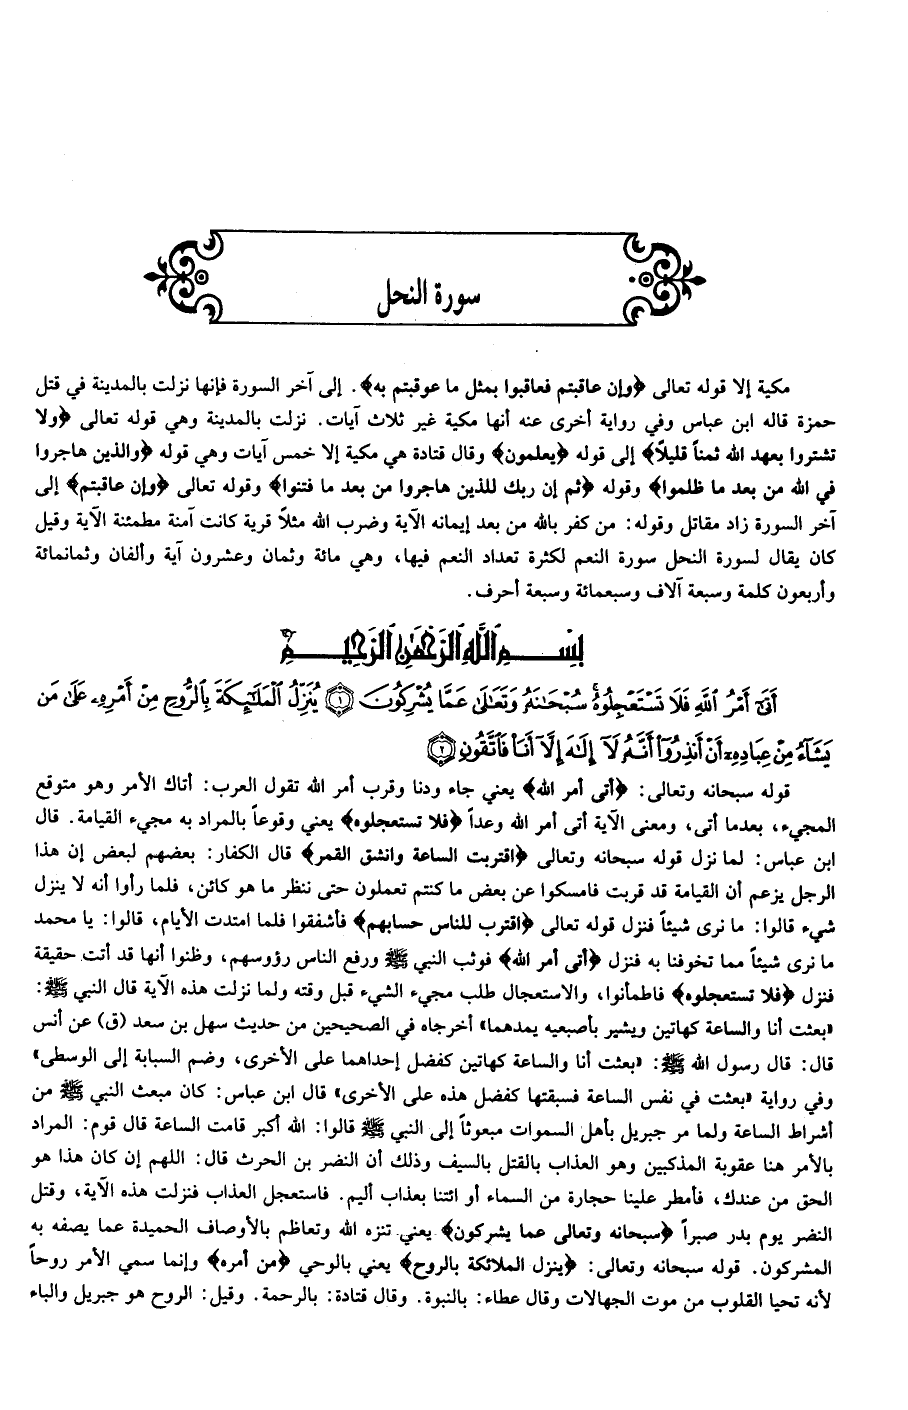 سورة النحل
مكية إلا قوله تعالى ﴿وإن عاقبتم فعاقبوا بمثل ما عوقبتم به﴾. إلى آخر السورة فإنها نزلت بالمدينة في قتل
حمزة قاله ابن عباس وفي رواية أخرى عنه أنها مكية غير ثلاث آيات. نزلت بالمدينة وهي قوله تعالى ﴿ولا
تشتروا بعهد الله ثمناً قليلاً﴾ إلى قوله ﴿يعلمون﴾ وقال قتادة هي مكية إلا خمس آيات وهي قوله ﴿والذين هاجروا
في الله من بعد ما ظلموا﴾ وقوله ﴿ثم إن ربك للذين هاجروا من بعد ما فتنوا﴾ وقوله تعالى ﴿وإن عاقبتم﴾ إلى
آخر السورة زاد مقاتل وقوله: من كفر بالله من بعد إيمانه الآية وضرب الله مثلاً قرية كانت آمنة مطمئنة الآية وقيل
كان يقال لسورة النحل سورة النعم لكثرة تعداد النعم فيها، وهي مائة وثمان وعشرون آية وألفان وثمانمائة
وأربعون كلمة وسبعة آلاف وسبعمائة وسبعة أحرف.
بِسْمِ ٱللَّهِ ٱلرَّحْمَٰنِ ٱلرَّحِيمِ
أَتَىٰٓ أَمْرُ ٱللَّهِ فَلَا تَسْتَعْجِلُوهُۚ سُبْحَٰنَهُۥ وَتَعَٰلَىٰ عَمَّا يُشْرِكُونَ ﴿١﴾ يُنَزِّلُ ٱلْمَلَٰٓئِكَةَ بِٱلرُّوحِ مِنْ أَمْرِهِۦ عَلَىٰ مَن
يَشَآءُ مِنْ عِبَادِهِۦٓ أَنْ أَنذِرُوٓا۟ أَنَّهُۥ لَآ إِلَٰهَ إِلَّآ أَنَا۠ فَٱتَّقُونِ ﴿٢﴾
قوله سبحانه وتعالى: ﴿أتى أمر الله﴾ يعني جاء ودنا وقرب أمر الله تقول العرب: أتاك الأمر وهو متوقع
المجيء، بعدما أتى، ومعنى الآية أتى أمر الله وعداً ﴿فلا تستعجلوه﴾ يعني وقوعاً بالمراد به مجيء القيامة. قال
ابن عباس: لما نزل قوله سبحانه وتعالى ﴿اقتربت الساعة وانشق القمر﴾ قال الكفار: بعضهم لبعض إن هذا
الرجل يزعم أن القيامة قد قربت فامسكوا عن بعض ما كنتم تعملون حتى ننظر ما هو كائن، فلما رأوا أنه لا ينزل
شيء قالوا: ما نرى شيئاً فنزل قوله تعالى ﴿اقترب للناس حسابهم﴾ فأشفقوا فلما امتدت الأيام، قالوا: يا محمد
ما نرى شيئاً مما تخوفنا به فنزل ﴿أتى أمر الله﴾ فوثب النبي ﷺ ورفع الناس رؤوسهم، وظنوا أنها قد أتت حقيقة
فنزل ﴿فلا تستعجلوه﴾ فاطمأنوا، والاستعجال طلب مجيء الشيء قبل وقته ولما نزلت هذه الآية قال النبي ﷺ:
«بعثت أنا والساعة كهاتين ويشير بأصبعيه يمدهما» أخرجاه في الصحيحين من حديث سهل بن سعد (ق) عن أنس
قال: قال رسول الله ﷺ: «بعثت أنا والساعة كهاتين كفضل إحداهما على الأخرى، وضم السبابة إلى الوسطى»
وفي رواية «بعثت في نفس الساعة فسبقتها كفضل هذه على الأخرى» قال ابن عباس: كان مبعث النبي ﷺ من
أشراط الساعة ولما مر جبريل بأهل السموات مبعوثاً إلى النبي ﷺ قالوا: الله أكبر قامت الساعة قال قوم: المراد
بالأمر هنا عقوبة المذكبين وهو العذاب بالقتل بالسيف وذلك أن النضر بن الحرث قال: اللهم إن كان هذا هو
الحق من عندك، فأمطر علينا حجارة من السماء أو ائتنا بعذاب أليم. فاستعجل العذاب فنزلت هذه الآية، وقتل
النضر يوم بدر صبراً ﴿سبحانه وتعالى عما يشركون﴾ يعني تنزه الله وتعاظم بالأوصاف الحميدة عما يصفه به
المشركون. قوله سبحانه وتعالى: ﴿ينزل الملائكة بالروح﴾ يعني بالوحي ﴿من أمره﴾ وإنما سمي الأمر روحاً
لأنه تحيا القلوب من موت الجهالات وقال عطاء: بالنبوة. وقال قتادة: بالرحمة. وقيل: الروح هو جبريل والباء